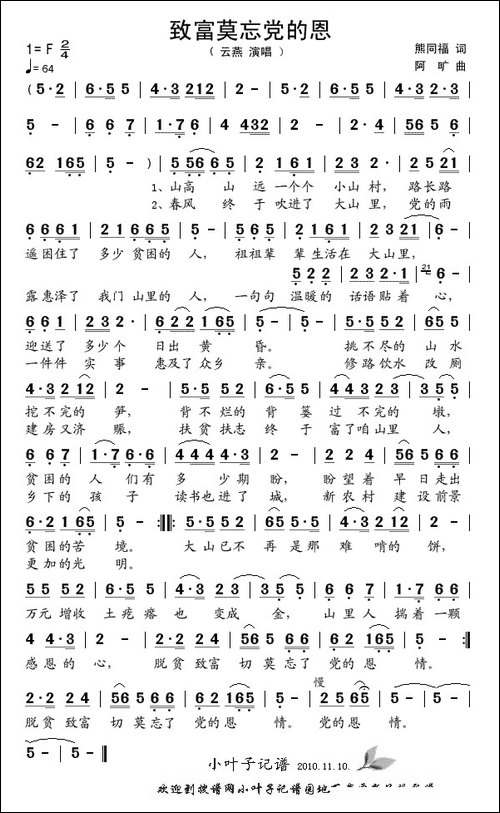 致富莫忘党的恩
（ 云燕 演唱 ）
1= F 2/4
♩= 64
熊同福 词
阿 旷 曲
( 5·2 | 5 - | 6·5 | 4·3 212 | 2 - | 5·2 | 6 5 | 4·3 |
5 - | 6 6 7 | 1·7 6 | 4 432 | 2 - | 2·2 2 4 | 56 5 6 |
62 165 | 5 - ) | 5 56 6 5 | 2 1 6 1 | 2 3 2 | 2 5 21 |
1、山高 山 远 一个个 小山 村， 路长路
2、春风 终 于 吹进了 大山 里， 党的雨
6 6 6 1 | 2 1 6 6 5 | 5 - | 2 2 3 | 5 2 2 1 | 2 3 21 | 6 - |
遥困住了 多少贫困的 人， 祖祖辈 辈生活在 大山里，
5 2 2 | 2 3 2·1 | 6 - |
露惠泽了 我们山里的 人， 一句句 温暖的 话语贴着 心，
6 6 6 1 | 2 3 2 | 6 2 2 1 6 5 | 5 - | 5 - | 5·5 5 2 | 65 5 |
迎送了 多少个 日出 黄 昏。 挑不尽的 山 水
一件件 实 事 惠及了众乡 亲。 修路饮水 改 厕
4·3 212 | 2 - | 5·5 5 2 | 6 5 | 4 4 3 2 3 | 3 5 | 4·3 |
挖不完的 笋， 背不烂的 背 篓 过 不完的 墩，
建房又济 赈， 扶贫扶志 终 于 富了咱山里 人，
6 6 7 | 1·7 6·6 | 4 4 4 3 | 2 - | 2 2 4 | 56 5 6 6 |
贫困的 人 们有 多 少期 盼， 盼望着 早日走出
乡下的 孩 子 读书也进了 城， 新农村 建设前景
6·2 1 65 | 5 - :‖: 5·5 5 2 | 6 6 5 | 4·3 2 1 2 | 2 - |
贫困的苦 境。 大山已不 再是那 难 啃的 饼，
更加的光 明。
5 5 5 2 | 6·5 6 | 1 2 3 | 5 - | 6 6 7 | 1·7 6 6 |
万元增收 土疙瘩 也 变成 金， 山里人 揣着一颗
4 4·3 | 2 - | 2·2 2 4 | 56 5 6 6 | 62 165 | 5 - :‖
感恩的 心， 脱贫致富 切莫忘了 党的恩 情。
2·2 2 4 | 56 5 6 6 | 6 2 1 6 5 | 5 - | 2 5 65 | 5 - |
慢
脱贫致富 切莫忘了 党的恩 情。 党的恩 情。
5 - | 5 - ‖
小叶子记谱 2010.11.10.
欢迎到搜谱网小叶子记谱园地